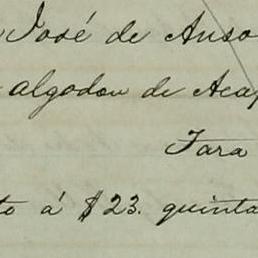 José de Anso
algodon de Acap
Tara
to á $23. quinta